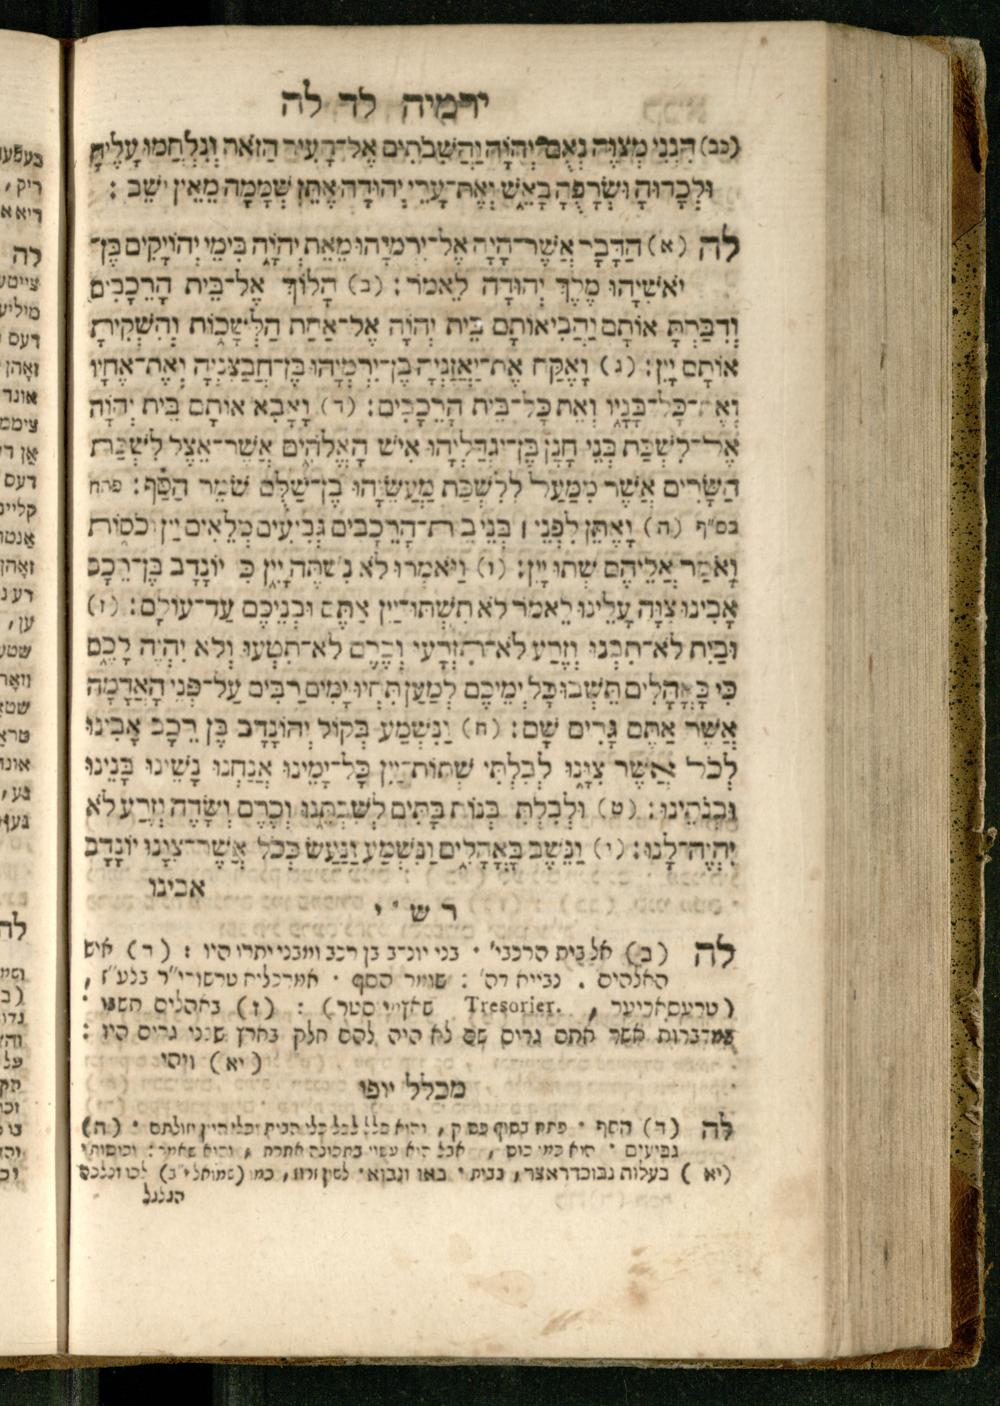 ירמיה לד לה
(כב) הִנְנִי מְצַוֶּה נְאֻם־יְהוָֹה וַהֲשִׁבֹתִים אֶל־הָעִיר הַזֹּאת וְנִלְחֲמוּ עָלֶיהָ
וּלְכָדוּהָ וּשְׂרָפֻהָ בָאֵשׁ וְאֶת־עָרֵי יְהוּדָה אֶתֵּן שְׁמָמָה מֵאֵין יֹשֵׁב :
לה (א) הַדָּבָר אֲשֶׁר־הָיָה אֶל־יִרְמְיָהוּ מֵאֵת יְהוָֹה בִּימֵי יְהוֹיָקִים בֶּן־
יֹאשִׁיָּהוּ מֶלֶךְ יְהוּדָה לֵאמֹר : (ב) הָלוֹךְ אֶל־בֵּית הָרֵכָבִים
וְדִבַּרְתָּ אוֹתָם וַהֲבִיאוֹתָם בֵּית יְהוָֹה אֶל־אַחַת הַלְּשָׁכוֹת וְהִשְׁקִיתָ
אוֹתָם יָיִן : (ג) וָאֶקַּח אֶת־יַאֲזַנְיָה בֶן־יִרְמְיָהוּ בֶּן־חֲבַצִּנְיָה וְאֶת־אֶחָיו
וְאֶת־כָּל־בָּנָיו וְאֵת כָּל־בֵּית הָרֵכָבִים : (ד) וָאָבִא אוֹתָם בֵּית יְהוָֹה
אֶל־לִשְׁכַּת בְּנֵי חָנָן בֶּן־יִגְדַּלְיָהוּ אִישׁ הָאֱלֹהִים אֲשֶׁר־אֵצֶל לִשְׁכַּת
הַשָּׂרִים אֲשֶׁר מִמַּעַל לְלִשְׁכַּת מַעֲשֵׂיָהוּ בֶן־שַׁלֻּם שֹׁמֵר הַסַּף : פתח
בס״ף (ה) וָאֶתֵּן לִפְנֵי ׀ בְּנֵי בֵית־הָרֵכָבִים גְּבִיעִים מְלֵאִים יַיִן וְכֹסוֹת
וָאֹמַר אֲלֵיהֶם שְׁתוּ יָיִן : (ו) וַיֹּאמְרוּ לֹא נִשְׁתֶּה יָּיִן כִּי יוֹנָדָב בֶּן־רֵכָב
אָבִינוּ צִוָּה עָלֵינוּ לֵאמֹר לֹא תִשְׁתּוּ־יַיִן אַתֶּם וּבְנֵיכֶם עַד־עוֹלָם : (ז)
וּבַיִת לֹא־תִבְנוּ וְזֶרַע לֹא־תִזְרָעוּ וְכֶרֶם לֹא־תִטְּעוּ וְלֹא יִהְיֶה לָכֶם
כִּי בָּאֳהָלִים תֵּשְׁבוּ כָּל יְמֵיכֶם לְמַעַן תִּחְיוּ יָמִים רַבִּים עַל־פְּנֵי הָאֲדָמָה
אֲשֶׁר אַתֶּם גָּרִים שָׁם : (ח) וַנִּשְׁמַע בְּקוֹל יְהוֹנָדָב בֶּן רֵכָב אָבִינוּ
לְכֹל אֲשֶׁר צִוָּנוּ לְבִלְתִּי שְׁתוֹת־יַיִן כָּל־יָמֵינוּ אֲנַחְנוּ נָשֵׁינוּ בָּנֵינוּ
וּבְנֹתֵינוּ : (ט) וּלְבִלְתִּי בְּנוֹת בָּתִּים לְשִׁבְתֵּנוּ וְכֶרֶם וְשָׂדֶה וָזֶרַע לֹא
יִהְיֶה־לָּנוּ : (י) וַנֵּשֶׁב בָּאֳהָלִים וַנִּשְׁמַע וַנַּעַשׂ כְּכֹל אֲשֶׁר־צִוָּנוּ יוֹנָדָב
אבינו
ר ש ״ י
לה (ב) אל בית הרכבי׳ · בני יונדב בן רכב ומבני יתרו היו : (ד) איש
האלהים · נבייא דה׳ : שומר הסף · אמרכליא טרשורי״ר בלע״ז ,
(טרעסאריער , Tresorier. שאצמייסטר) : (ז) באהלים תשבו ·
במדברות אשר אתם גרים שם לא היה להם חלק בארץ שבני גרים היו :
(יא) ויהי
מכלל יופי
לה (ד) הסף · פתח בסוף פסוק , והוא כלל לכל כלי הבית וכלי היין זולתם · (ה)
גביעים · הוא כמו כוס , אבל הוא עשוי בתכונה אחרת , והוא שאמר : וכוסות :
(יא) בעלות נבוכדראצר , בבית · באו ונבוא · לשון זרוז , כמו (שמואל י״ב) לכו ונלכה
הגלגל